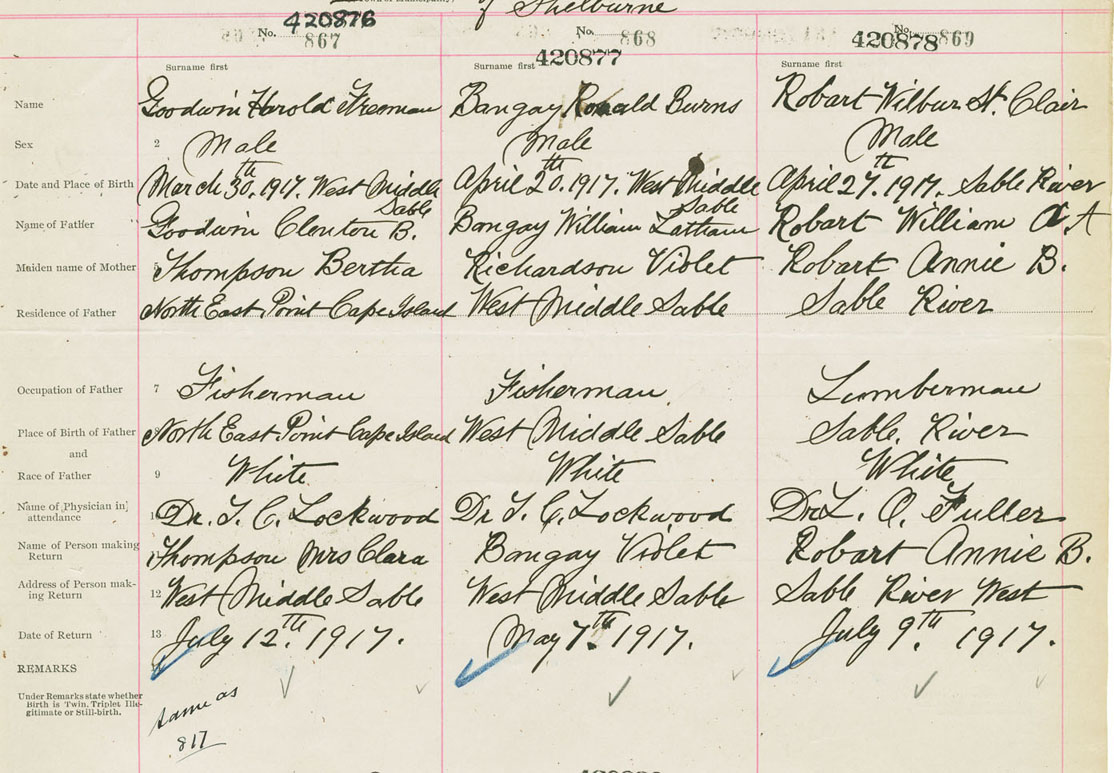 of Shelburne
420876
No. 867
No. 868
420877
No. 869
420878
Surname first
Surname first
Surname first
Name
Goodwin Harold Freeman
Bangay Ronald Burns
Robart Wilbur St. Clair
Sex
2 Male
Male
Male
Date and Place of Birth
March 30th. 1917. West Middle Sable
April 20th. 1917. West Middle Sable
April 27th. 1917. Sable River
Name of Father
Goodwin Clenton B.
Bangay William Latham
Robart William A. A
Maiden name of Mother
Thompson Bertha
Richardson Violet
Robart Annie B.
Residence of Father
North East Point Cape Island
West Middle Sable
Sable River
Occupation of Father
7 Fisherman
Fisherman
Lumberman
Place of Birth of Father
North East Point Cape Island
West Middle Sable
Sable River
and
Race of Father
9 White
White
White
Name of Physician in attendance
Dr. T. C. Lockwood
Dr T. C. Lockwood
Dr. L. O. Fuller
Name of Person making Return
Thompson Mrs Clara
Bangay Violet
Robart Annie B.
Address of Person making Return
12 West Middle Sable
West Middle Sable
Sable River West
Date of Return
13 July 12th. 1917.
May 7th. 1917.
July 9th. 1917.
REMARKS
Under Remarks state whether
Birth is Twin, Triplet, Ille-
gitimate or Still-birth.
same as
817